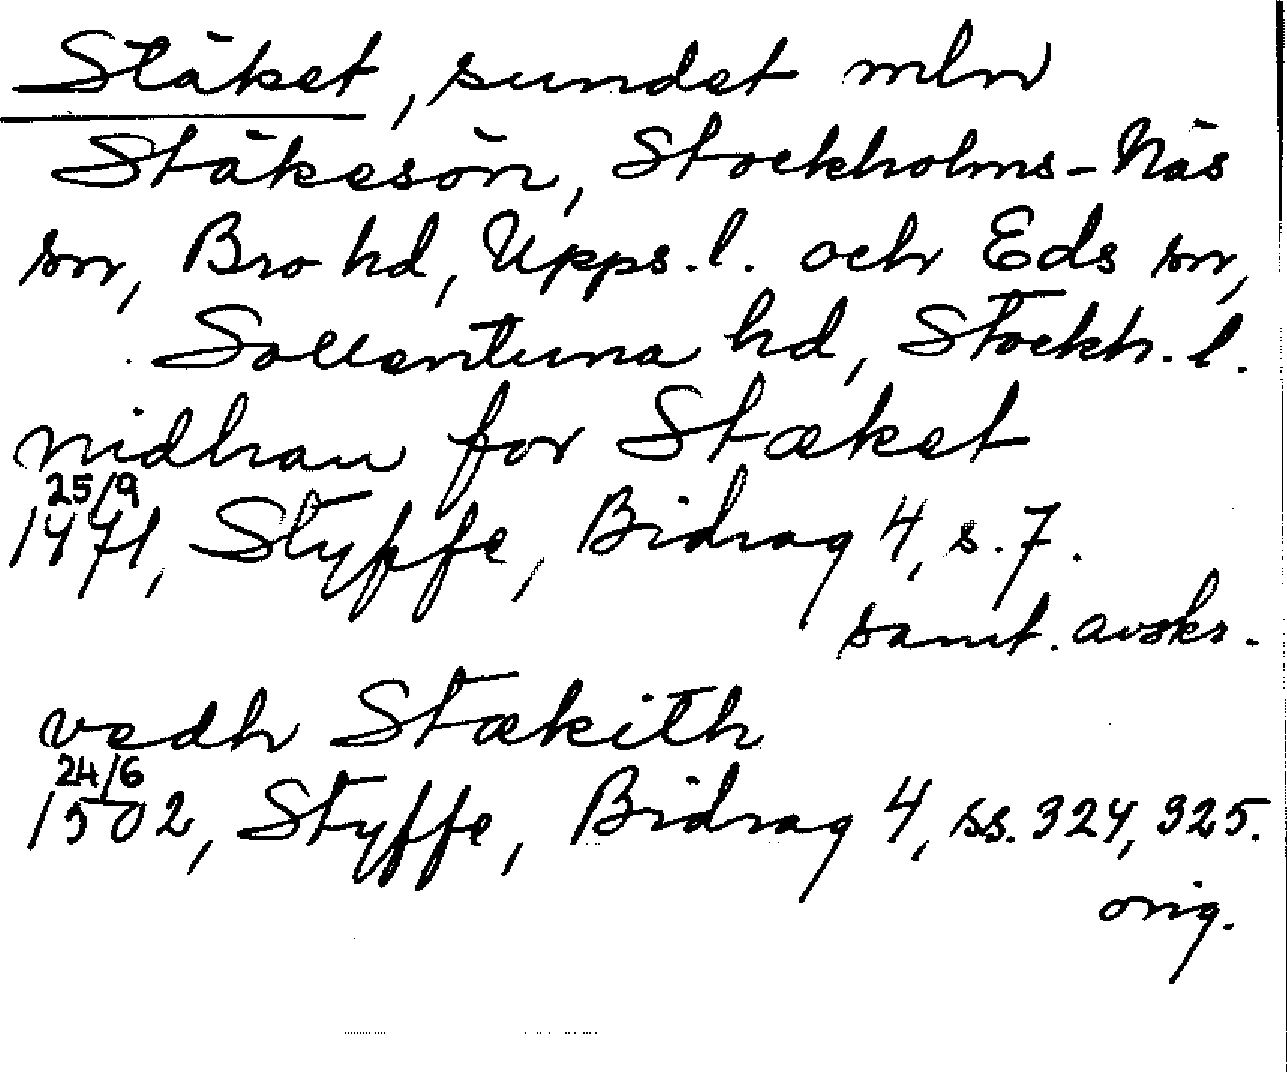 Stäket, sundet mln
Stäkesön, Stockholms-Näs
sn, Bro hd, Upps. l. och Eds sn,
Sollentuna hd, Stockh. l.
nidhan for Stæket
25/9
1471, Styffe, Bidrag 4, s. 7.
samt. avskr.
vedh Stækith
24/6
1502, Styffe, Bidrag 4, ss. 324, 325.
orig.